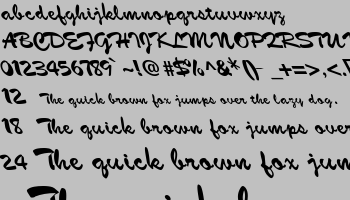 abcdefghijklmnopqrstuvwxyz
ABCDEFGHIJKLMNOPQRSTU
0123456789` ~!@#$%^&*() -_+=>,<.
12 The quick brown fox jumps over the lazy dog.
18 The quick brown fox jumps over
24 The quick brown fox jum